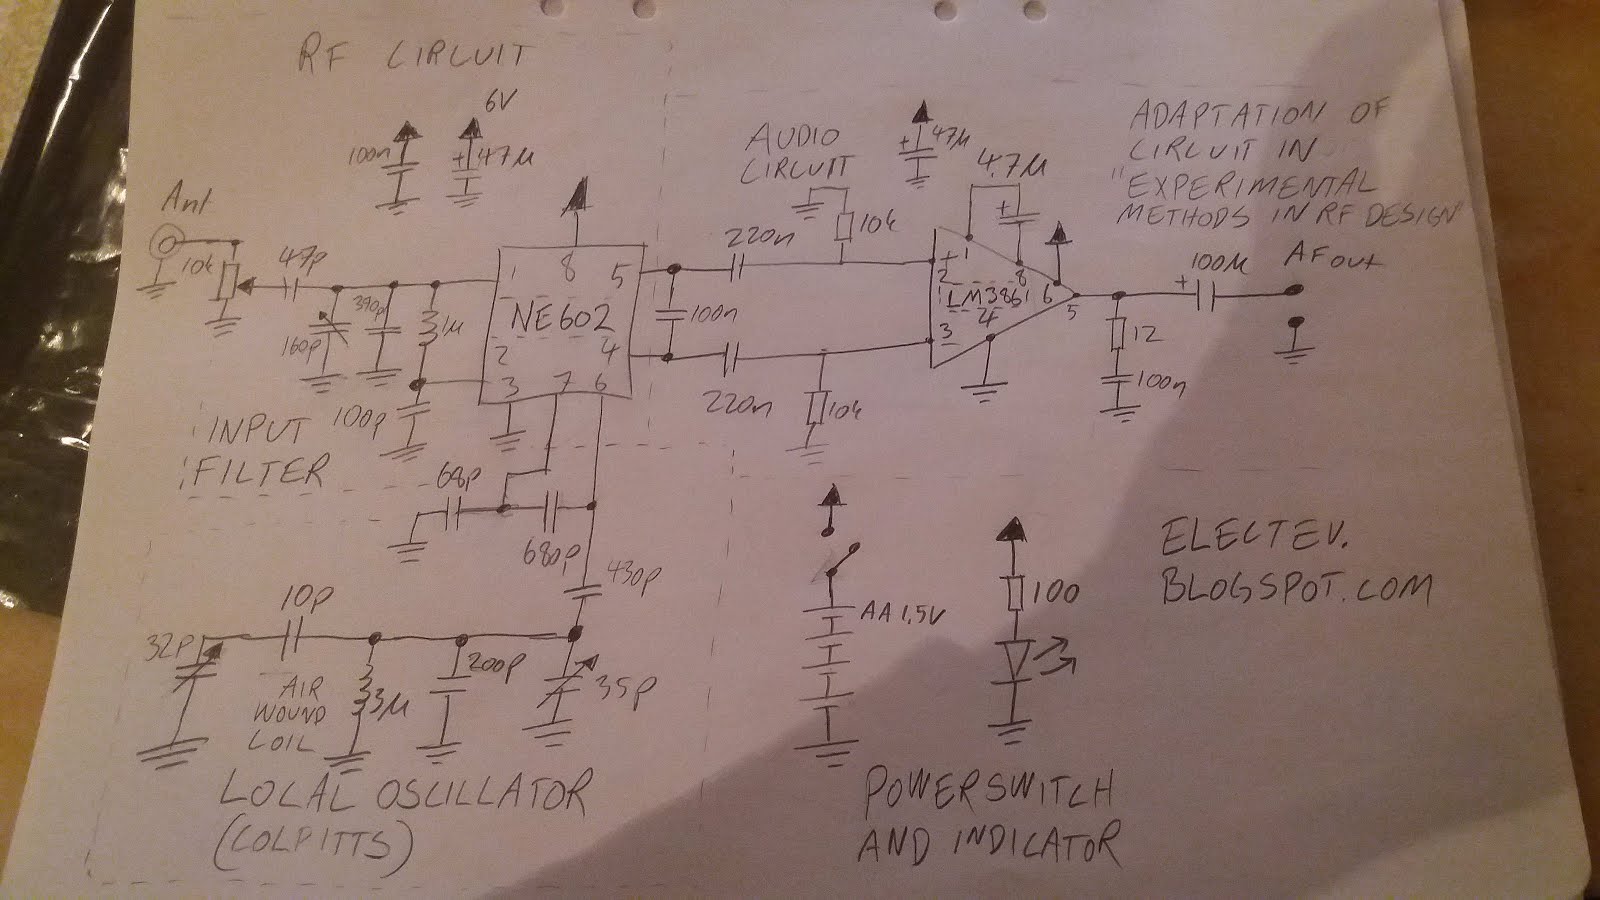 RF CIRCUIT
6V
100n
+
47µ
Ant
10k
47p
160p
390p
1µ
100p
INPUT
FILTER
1
8
5
NE602
2
4
3
7
6
68p
680p
430p
10p
32p
AIR
WOUND
COIL
3µ
200p
35p
LOCAL OSCILLATOR
(COLPITTS)
AUDIO
CIRCUIT
220n
10k
100n
220n
10k
+
47µ
4.7µ
+
+
1
2
8
LM386
6
4
3
5
12
100n
+
100µ
AFout
ADAPTATION OF
CIRCUIT IN
"EXPERIMENTAL
METHODS IN RF DESIGN"
AA 1,5V
100
POWERSWITCH
AND INDICATOR
ELECTEV.
BLOGSPOT.COM